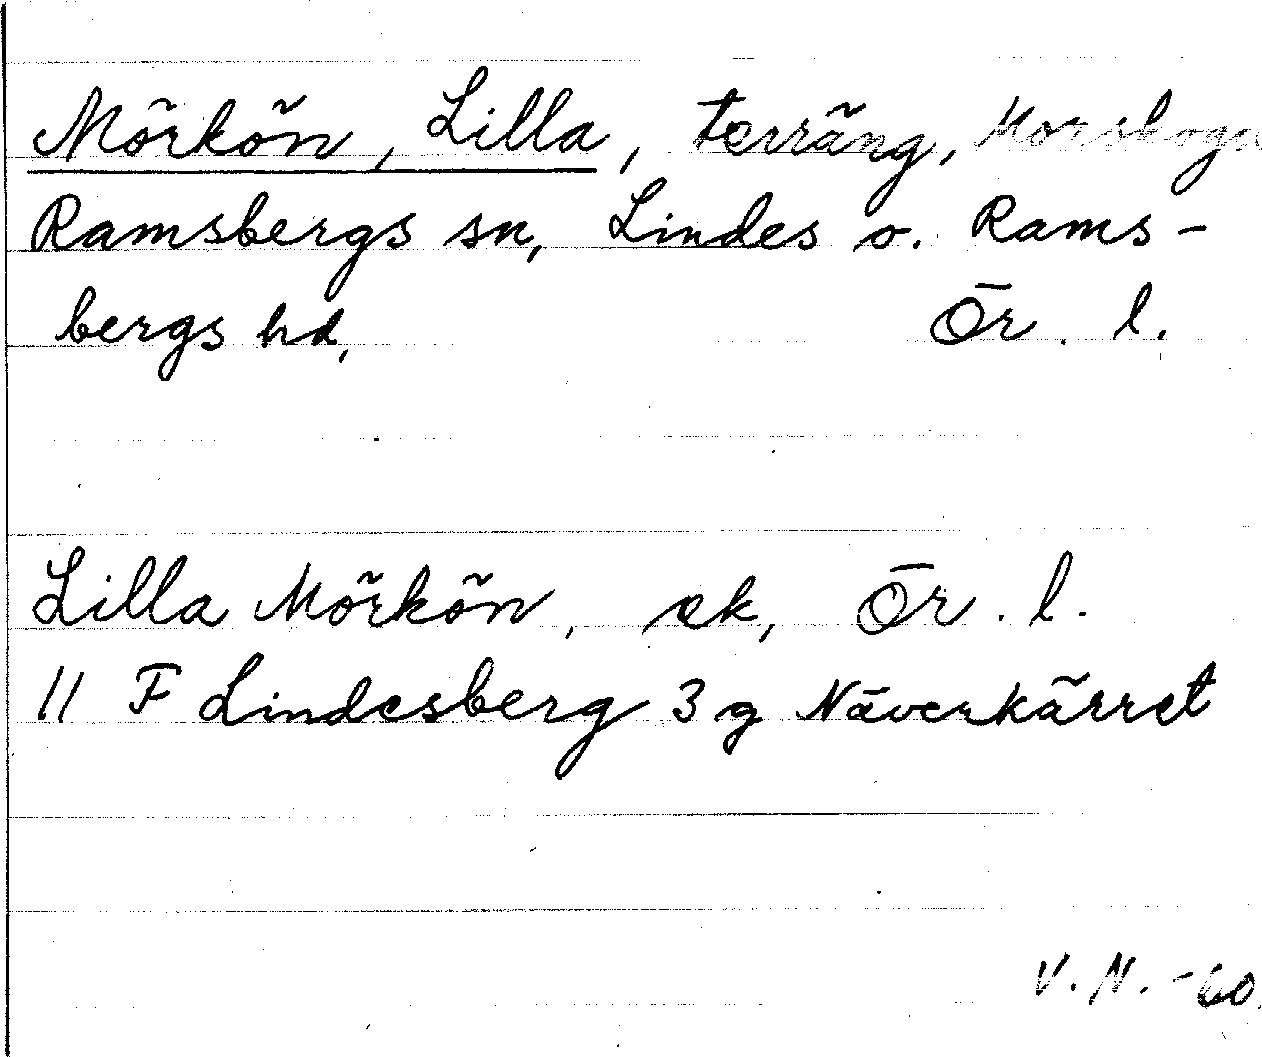 Mörkön, Lilla, terräng, Morskoga
Ramsbergs sn, Lindes o. Rams-
bergs hd, Ör. l.
Lilla Mörkön, ek, Ör. l.
11 F Lindesberg 3 g Näverkärret
V. N. -60.